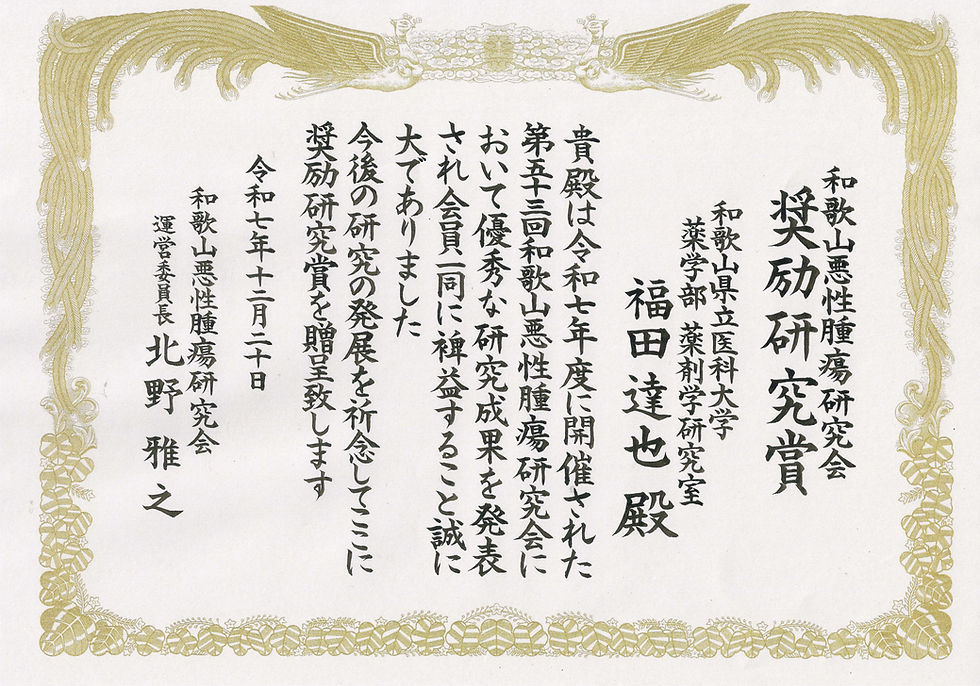 和歌山悪性腫瘍研究会
奨励研究賞
和歌山県立医科大学
薬学部 薬剤学研究室
福田達也殿
貴殿は令和七年度に開催された
第五十三回和歌山悪性腫瘍研究会に
おいて優秀な研究成果を発表
され会員一同に裨益すること誠に
大でありました
今後の研究の発展を祈念してここに
奨励研究賞を贈呈致します
令和七年十二月二十日
和歌山悪性腫瘍研究会
運営委員長 北野 雅之